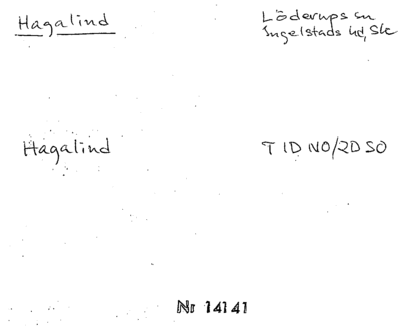 Hagalind
Löderups sn
Ingelstads hd, Sk
Hagalind
T 1D NO/2D SO
Nr 14141